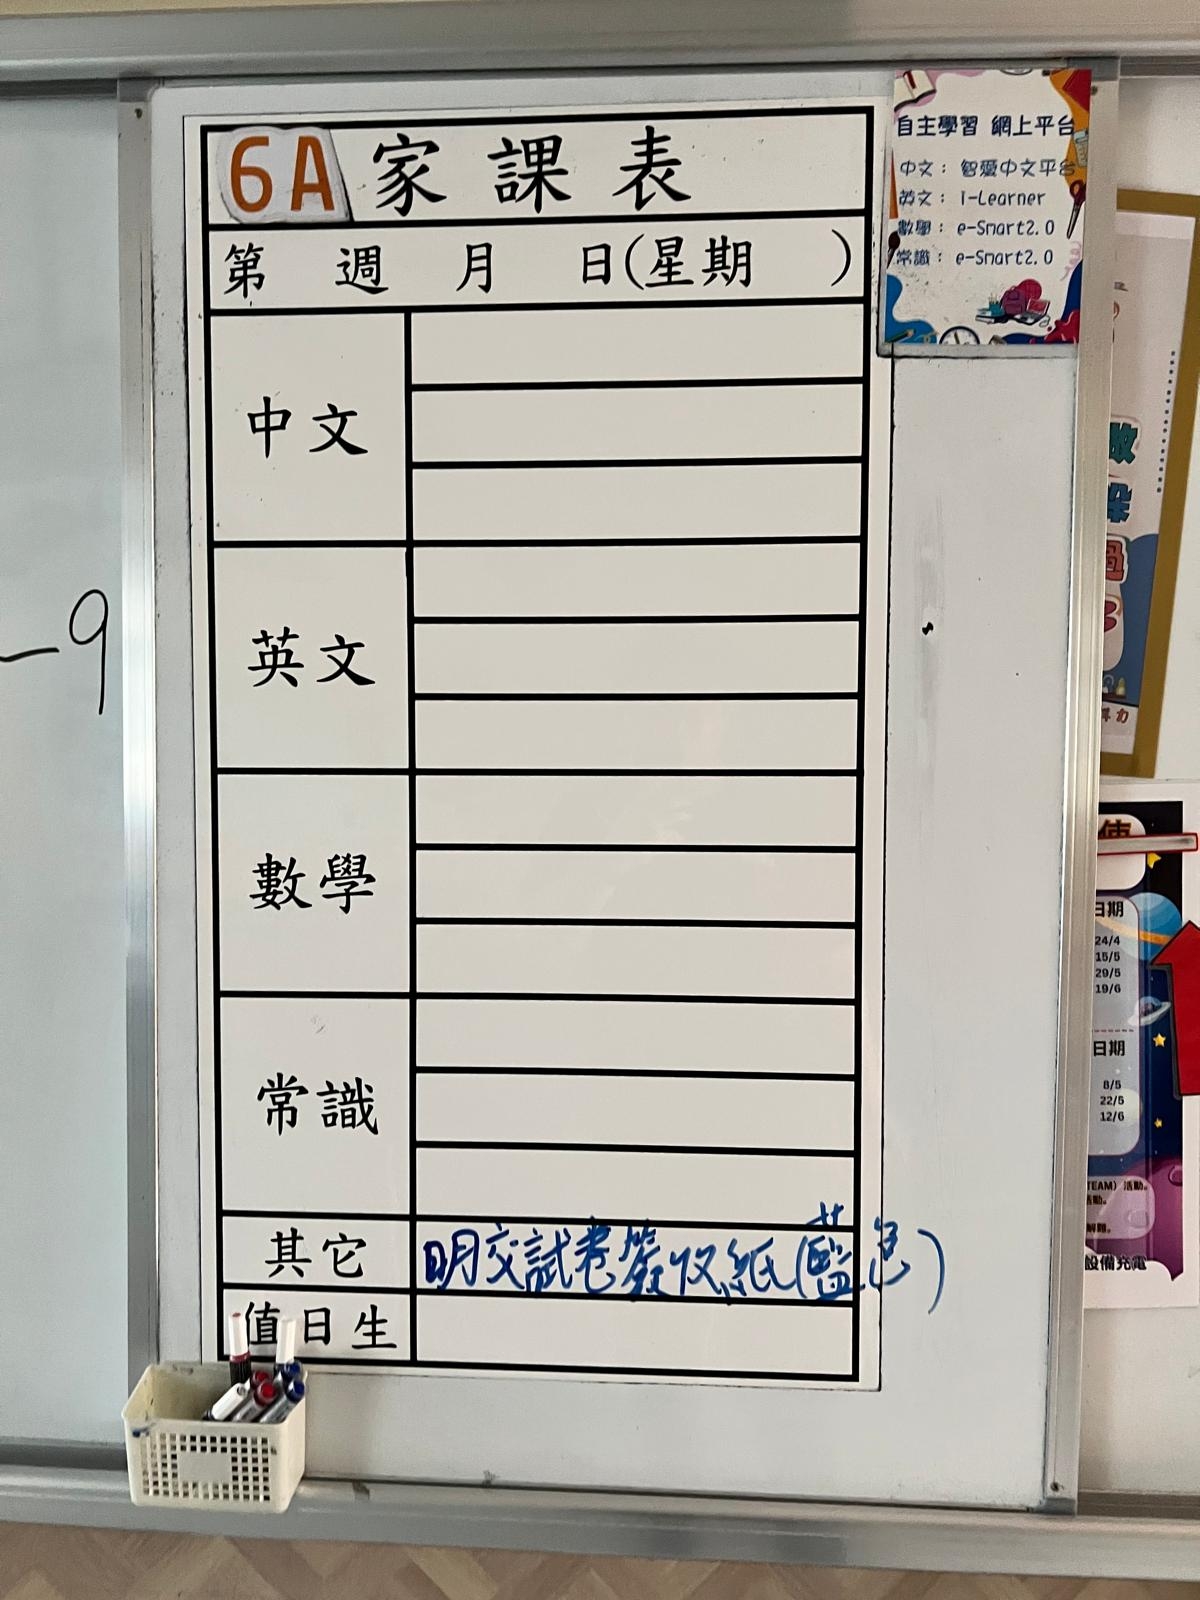 6A 家課表
第 週 月 日(星期 )
中文
英文
數學
常識
其它 明交試卷簽收紙(藍色)
值日生
自主學習 網上平台
中文： 智愛中文平台
英文： I-Learner
數學： e-Smart2.0
常識： e-Smart2.0
-9
日期
24/4
15/5
29/5
19/6
日期
8/5
22/5
12/6
TEAM）活動。
活動。
解難。
設備充電